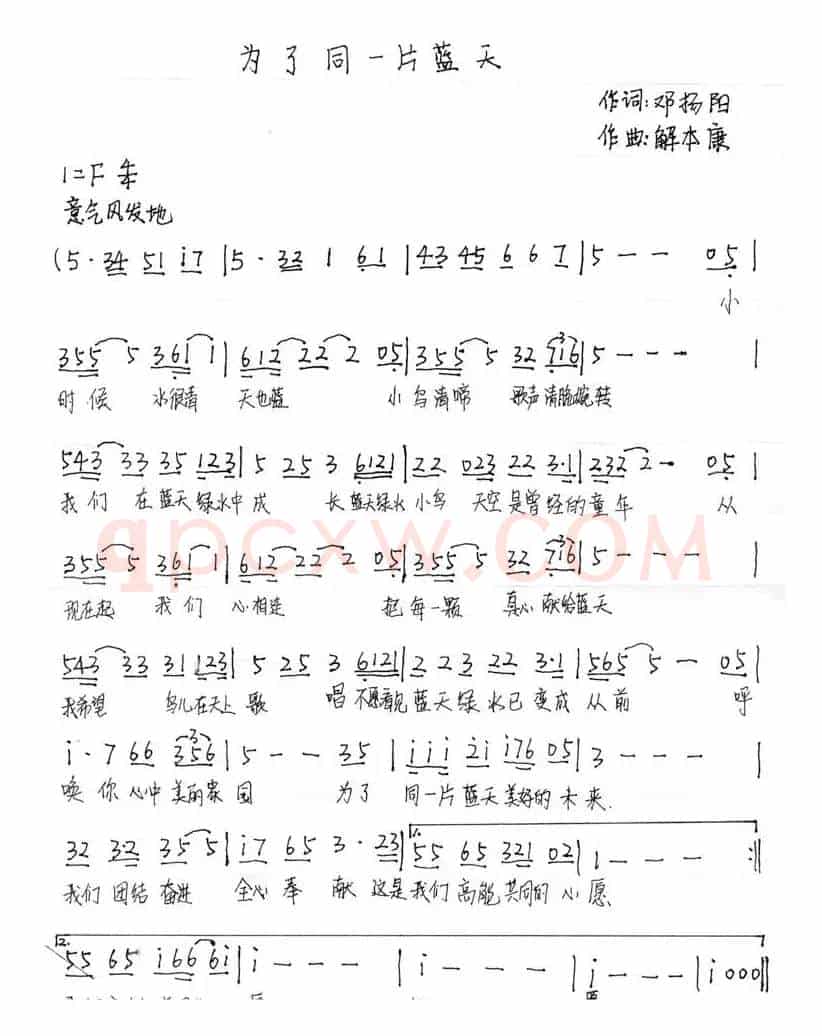 为了同一片蓝天
作词:邓扬阳
作曲:解本康
1=F 4/4
意气风发地
(5·34 51 i7|5·32 1 61|43 45 6 6 7|5 - - 05|
小
355 5 361 1|612 22 2 05|355 5 32 716|5 - - -|
时候 水很清 天也蓝 小鸟清啼 歌声清脆婉转
543 33 35 123|5 25 3 6121|22 023 22 3·1|232 2 - 05|
我们 在蓝天绿水中成 长 蓝天绿水 小鸟 天空是曾经的童年 从
qpcxw.COM
355 5 361 1|612 22 2 05|355 5 32 716|5 - - -|
现在起 我们 心相连 把每一颗 真心献给蓝天
543 33 31 123|5 25 3 6121|2 23 22 3·1|565 5 - 05|
我希望 鸟儿在天上歌 唱 不愿看见蓝天绿水已变成从前 呼
i·7 66 356|5 - - 35|iii 2i i76 05|3 - - -|
唤你心中美丽家园 为了 同一片蓝天美好的未来
32 3·2 35 5|i7 65 3·23|1. 55 65 321 02|1 - - -:||
我们团结奋进 全心奉献 这是我们高能共同的心愿
2. 55 65 i66 6i|i - - -|i - - -|i - - -|i000||